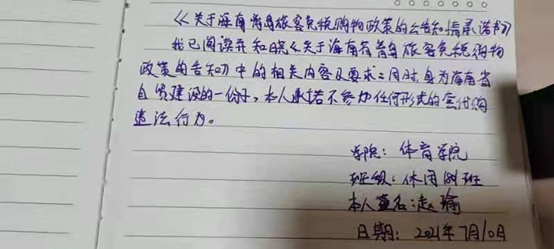 《关于海南离岛旅客免税购物政策的告知情承诺书》
我已阅读并知晓《关于海南省离岛旅客免税购物
政策的告知》中的相关内容及要求；同时，身为海南省
自贸建设的一份子，本人承诺不参加任何形式的套代购
违法行为。
学院：体育学院
班级：休闲 班
本人签名：赵瑜
日期：2021年7月10日